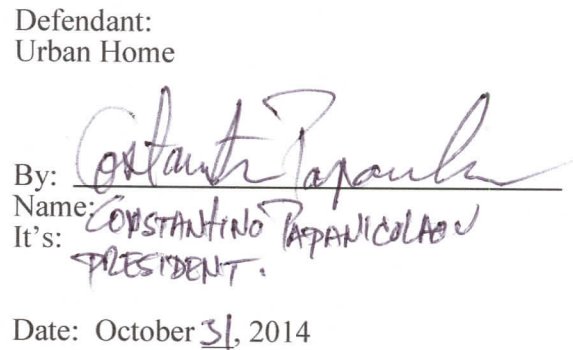 Defendant:
Urban Home
By: Constantino Papanicolaou
Name: CONSTANTINO PAPANICOLAOU
It's: PRESIDENT.
Date: October 31, 2014